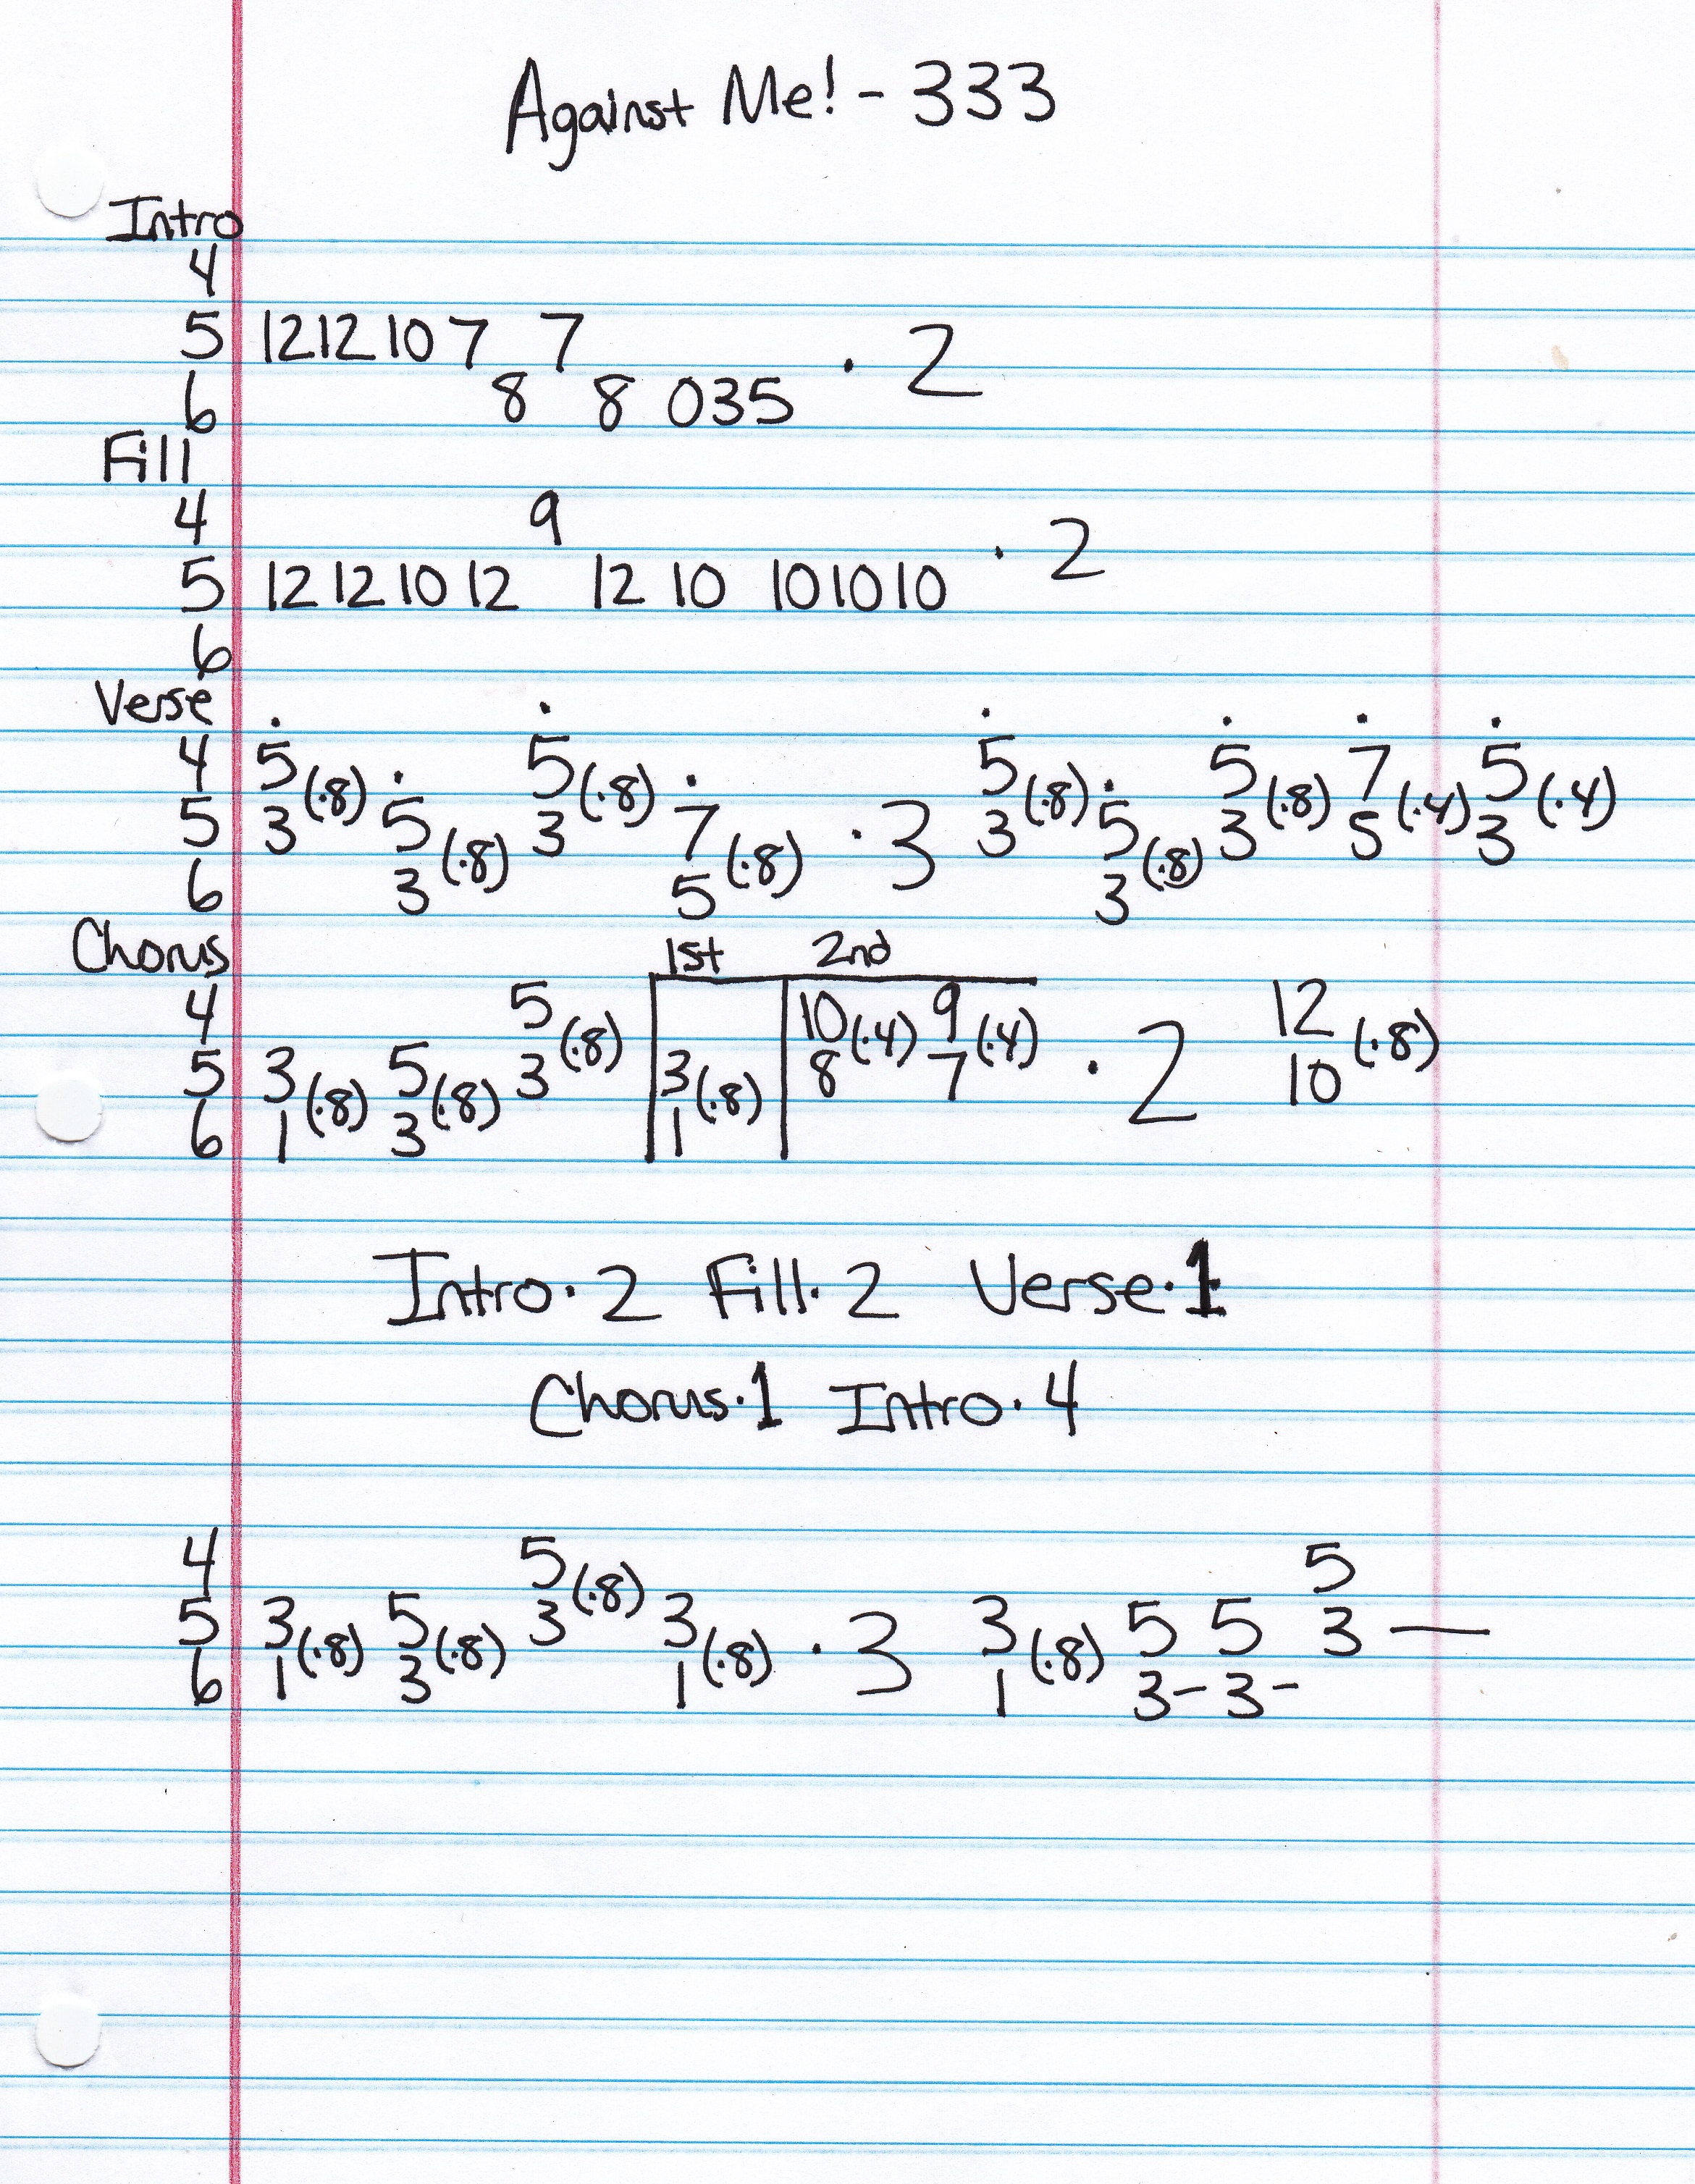 Against Me! - 333
Intro
4
5 12 12 10 7 7
6 8 8 0 3 5 · 2
Fill
4 9
5 12 12 10 12 12 10 10 10 10 · 2
6
Verse
4 5 (·8) 5 (·8) 5 (·8) 5 (·8) 7 (·4) 5 (·4)
5 3 5 (·8) 3 7 (·8) · 3 3 5 (·8) 3 5 3
6 3 5 3
Chorus 1st 2nd
4 5 (·8) 10 (·4) 9 (·4) 12 (·8)
5 3 (·8) 5 (·8) 3 3 (·8) 8 7 · 2 10
6 1 3 1
Intro · 2 Fill · 2 Verse · 1
Chorus · 1 Intro · 4
4 5 (·8) 5
5 3 (·8) 5 (·8) 3 3 (·8) · 3 3 (·8) 5 5 3 —
6 1 3 1 1 3 - 3 -